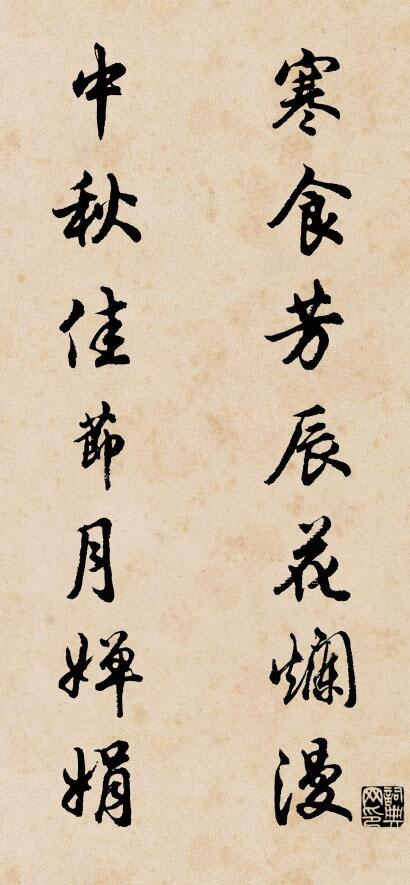 寒食芳辰花爛漫
中秋佳節月嬋娟
詞典网印